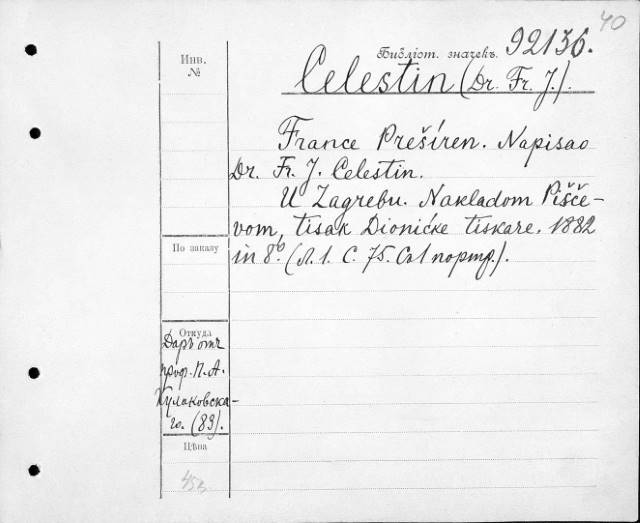 40
Инв.
№
Библіот. значекъ. 92136.
Celestin (Dr. Fr. J.).
France Prešíren. Napisao
Dr. Fr. J. Celestin.
U Zagrebu. Nakladom Pišče-
vom, tisak Dioničke tiskare. 1882
in 8º. (Л. 1. С. 75. Со 1 портр.).
По заказу
Откуда
Даръ отъ
проф. П. А.
Кулаковска-
го. (83).
Цѣна